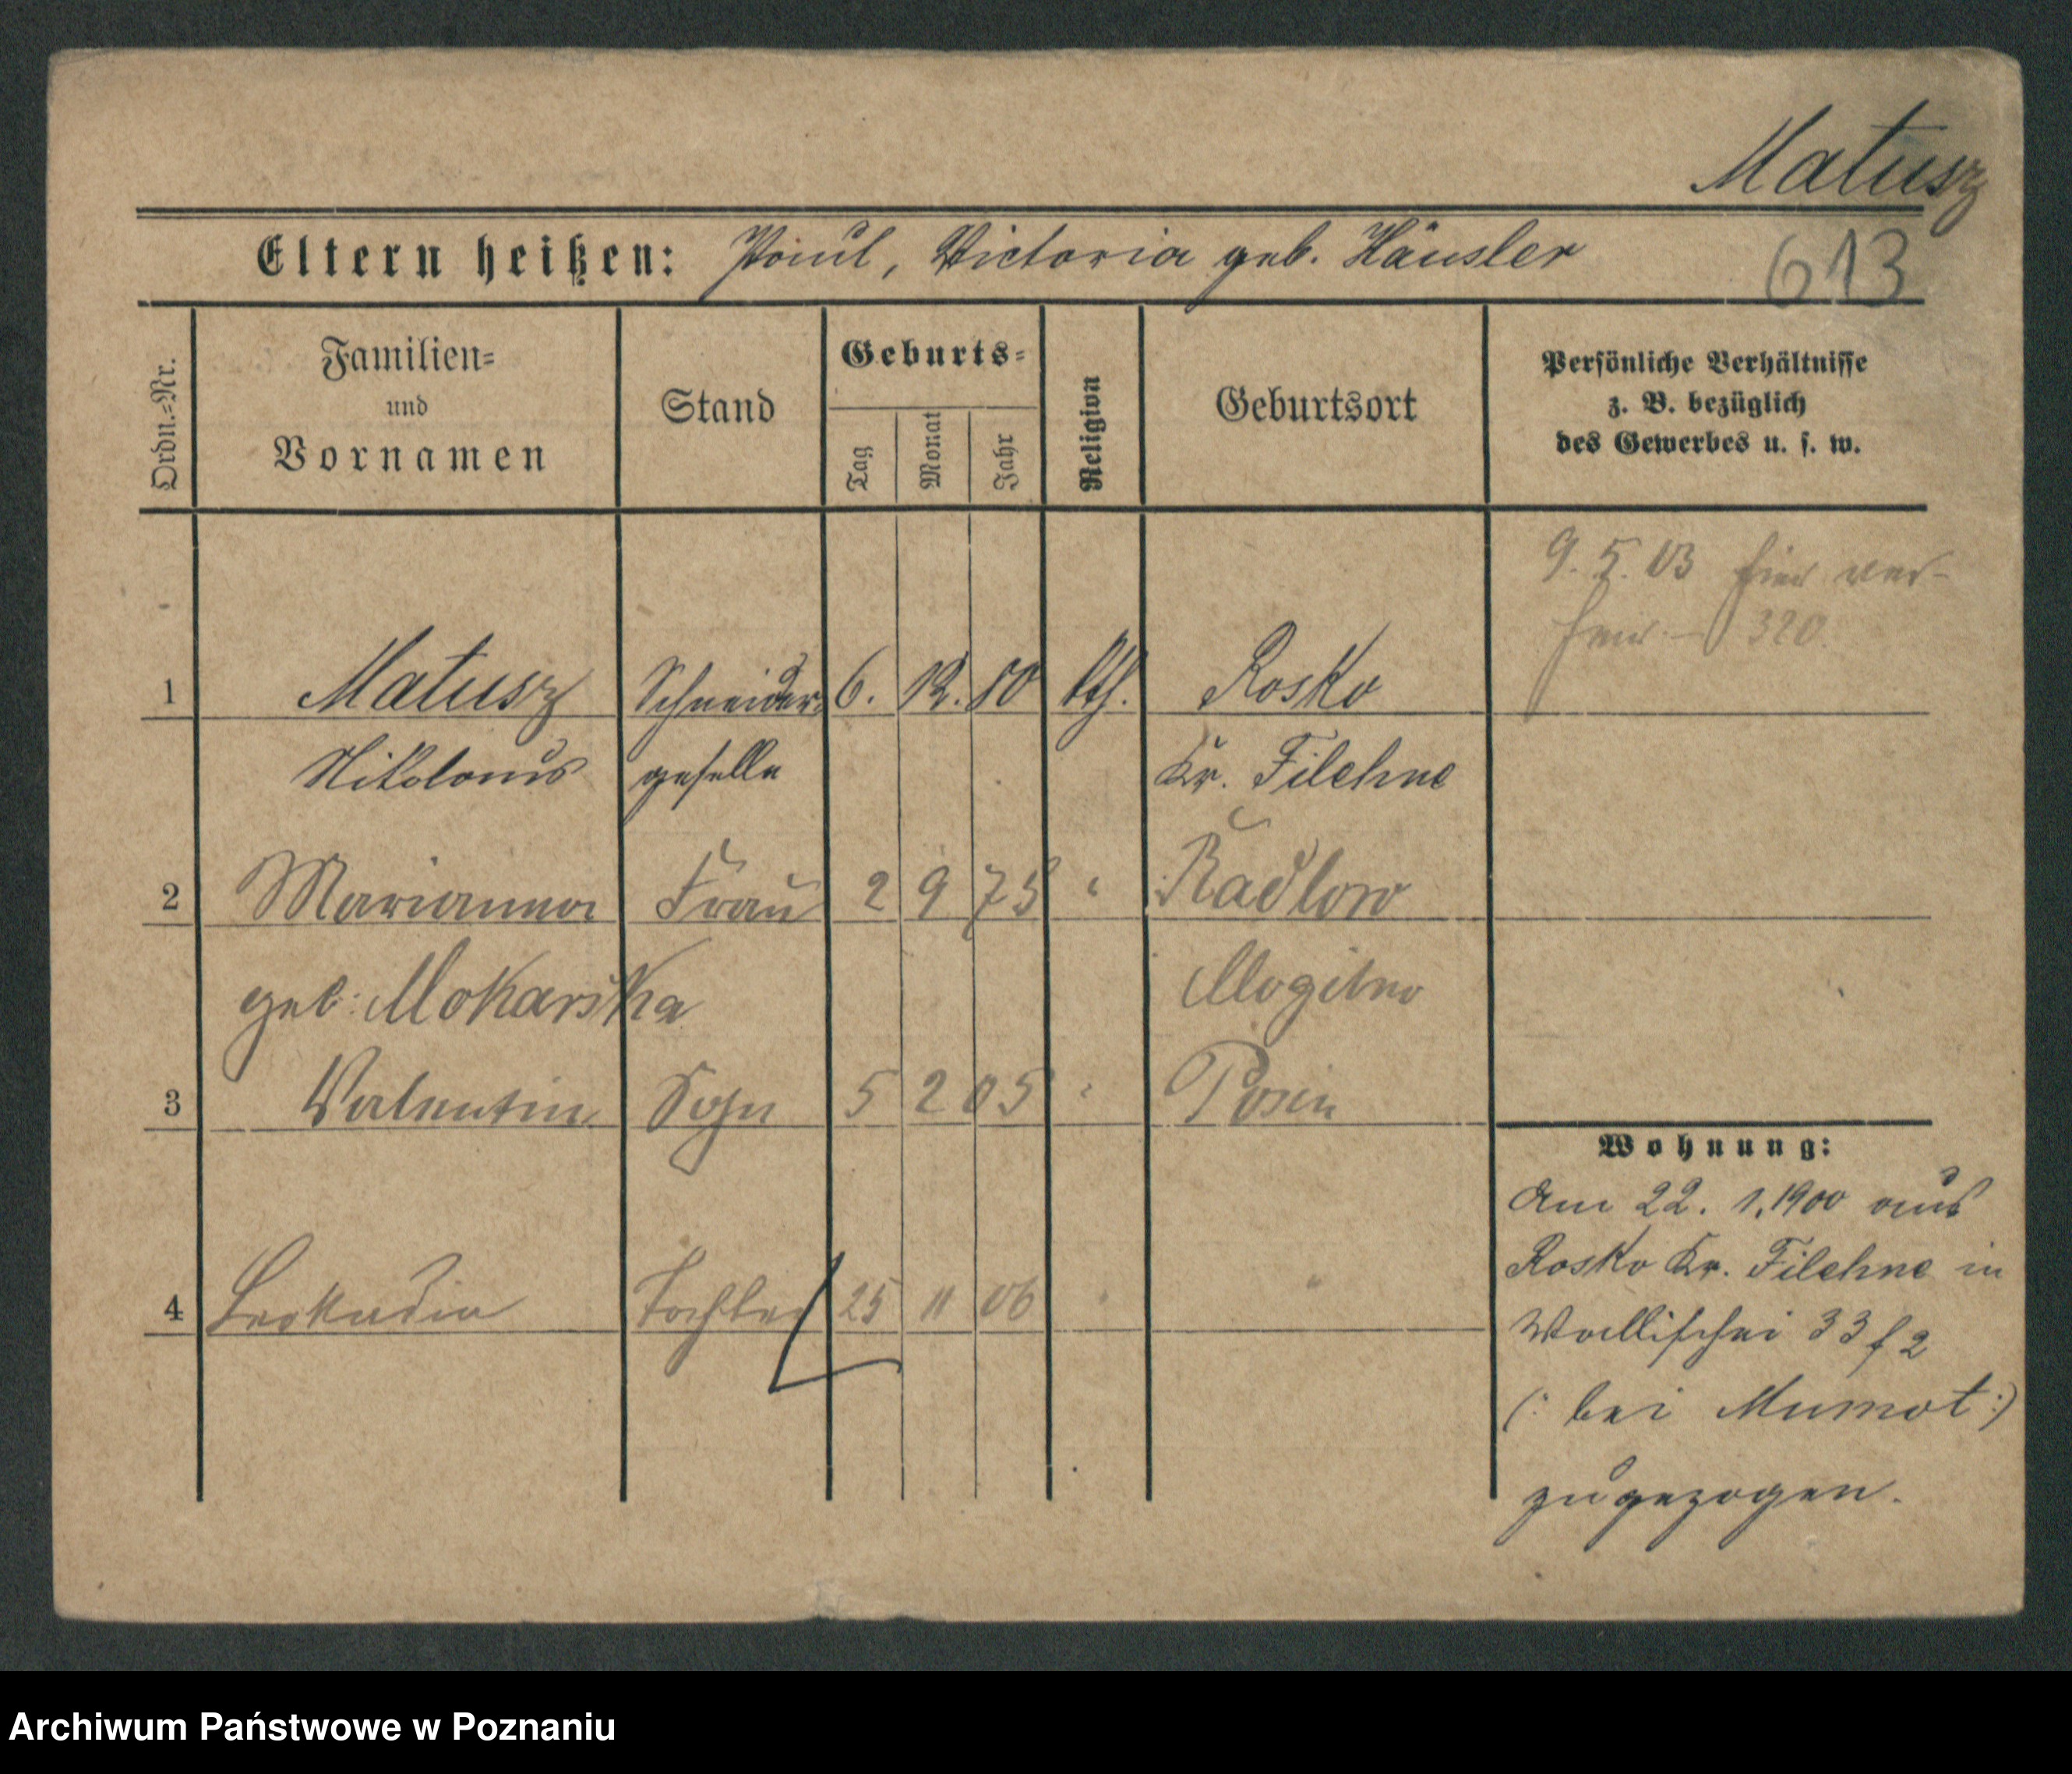 Matusz
Eltern heißen: Paul, Victoria geb. Häusler
613
Ordn.-Nr.
Familien-
und
Vornamen
Stand
Geburts-
Tag
Monat
Jahr
Religion
Geburtsort
Persönliche Verhältnisse
z. B. bezüglich
des Gewerbes u. s. w.
9. 5. 03 hier ver-
heir. 320.
1 Matusz Schneider- 6. 12. 80 kth. Rosko
Nikolaus geselle Kr. Filehne
2 Marianna Frau 2 9 75 " Radlow
geb. Mokarska Mogilno
3 Valentin Sohn 5 2 05 " Posen
4 Leokadia Tochter 25 11 06 " "
Wohnung:
Am 22. 1. 1900 aus
Rosko Kr. Filehne in
Wallischei 33 f 2
(: bei Mumot :)
zugezogen.
Archiwum Państwowe w Poznaniu